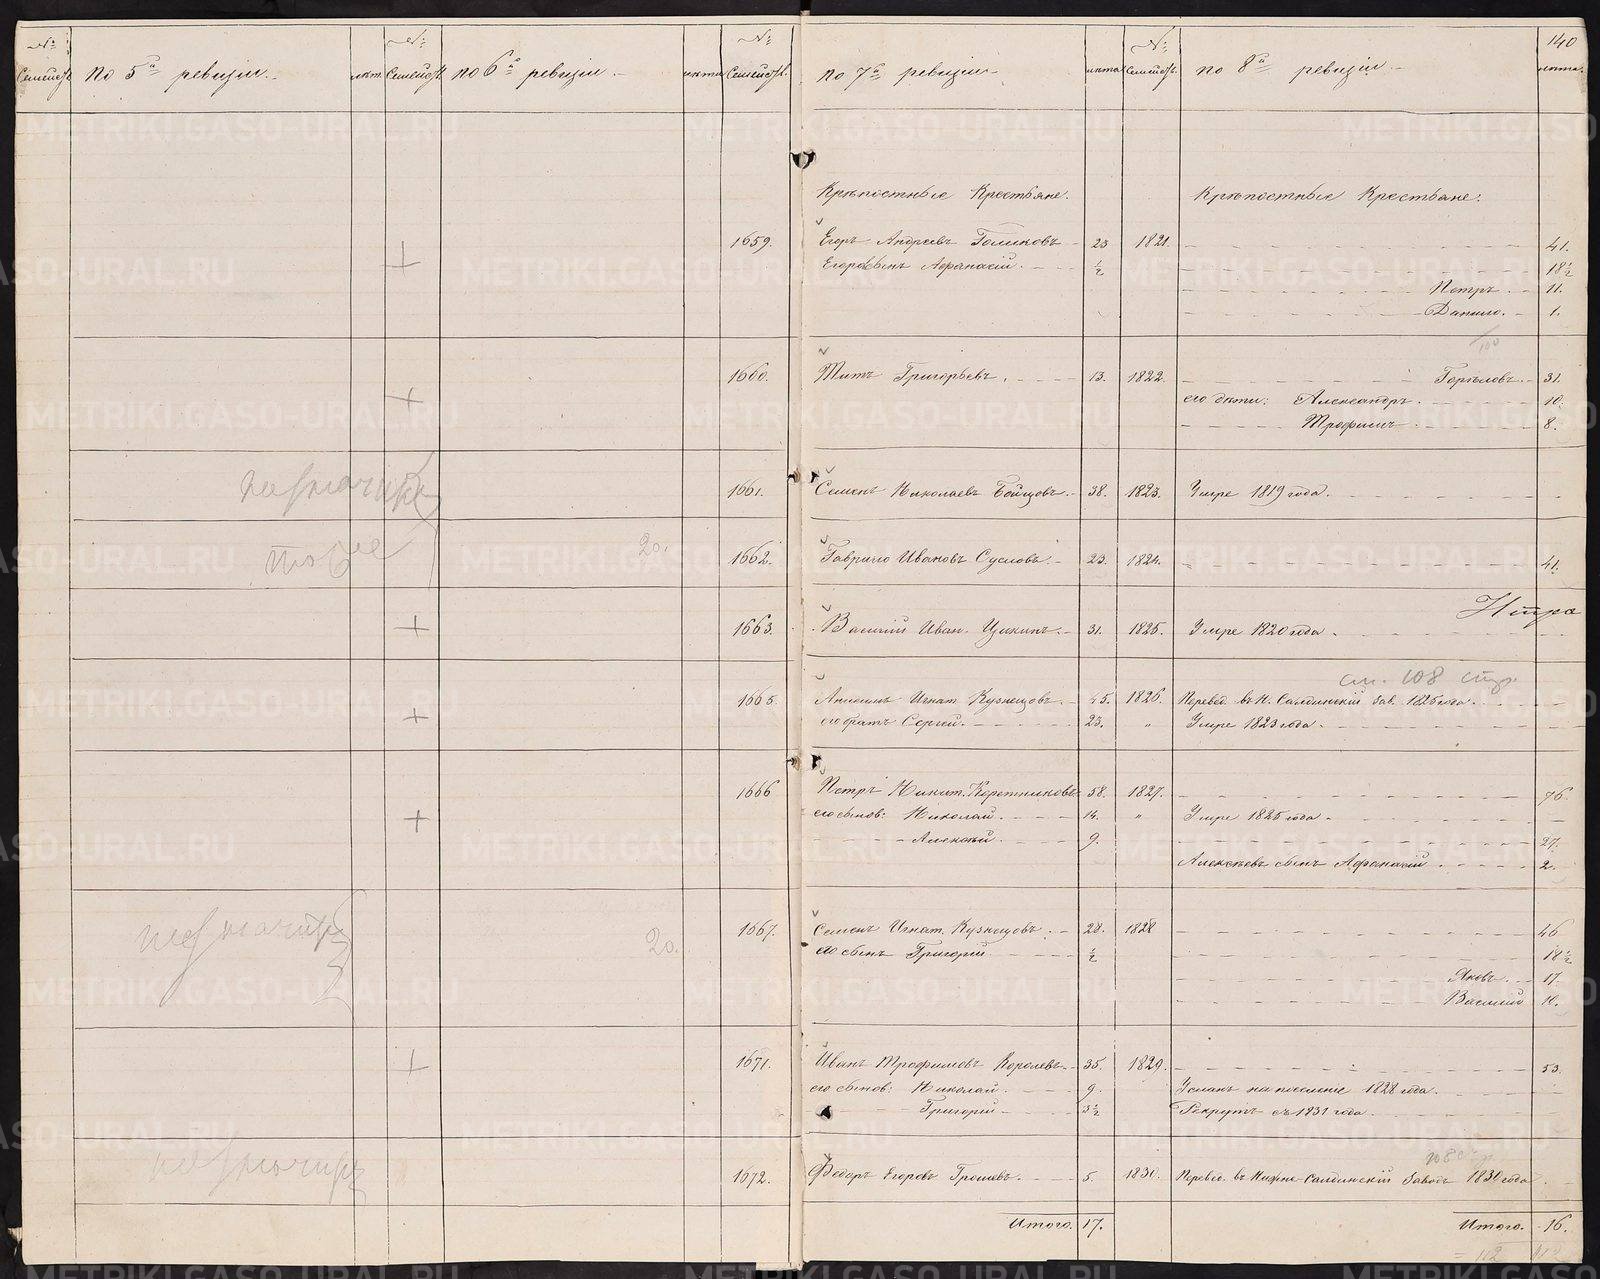 140
№ Семейств. По 5й ревизіи. лѣта. № Семейств. по 6й ревизіи. лѣта № Семейств. по 7й ревизіи. лѣта № Семейств. по 8й ревизіи. лѣта.
Крѣпостные Крестьяне. Крѣпостные Крестьяне.
1659. Егоръ Андреевъ Голиковъ 23 1821. 41.
Егоровъ сынъ Афанасій. ½ 18½
Петръ 11.
Данило. 1.
1660. Титъ Григорьевъ. 13. 1822. Горѣловъ. 31.
его дѣти: Александръ. 10.
Трофимъ 8.
1661. Семенъ Николаевъ Бойцовъ. 38. 1823. Умре 1819 года.
тоже 20. 1662. Гаврило Ивановъ Сусловъ. 23. 1824. 41.
1663. Василій Иван. 31. 1825. Умре 1820 года.
см. 108 стр.
1665. Игнат. Кузнецовъ. 45. 1826. Перевед. въ Н. Салдинскій зав. 1825 года.
его братъ Сергій. 23. " Умре 1823 года.
1666 Петръ Никит. Коротниковъ 58. 1827. 76.
его сынов: Николай. 14. " Умре 1825 года.
Алексѣй. 9. 27.
Алексѣевъ сынъ Афанасій 2.
20. 1667. Семенъ Игнат. Кузнецовъ. 28. 1828 46
его сынъ Григорій ½ 18½
Яковъ 17.
Василій 10.
1671. Иванъ Трофимовъ Королевъ. 35. 1829. 53.
его сынов: Николай 9. Усланъ на поселеніе 1828 года.
Григорій 3½ Рекрутъ съ 1831 года.
1672. Федоръ Егоровъ Грошевъ. 5. 1830. Перевед. въ Нижне Салдинскій Заводъ 1830 года
Итого. 17. Итого. 16.
METRIKI.GASO-URAL.RU